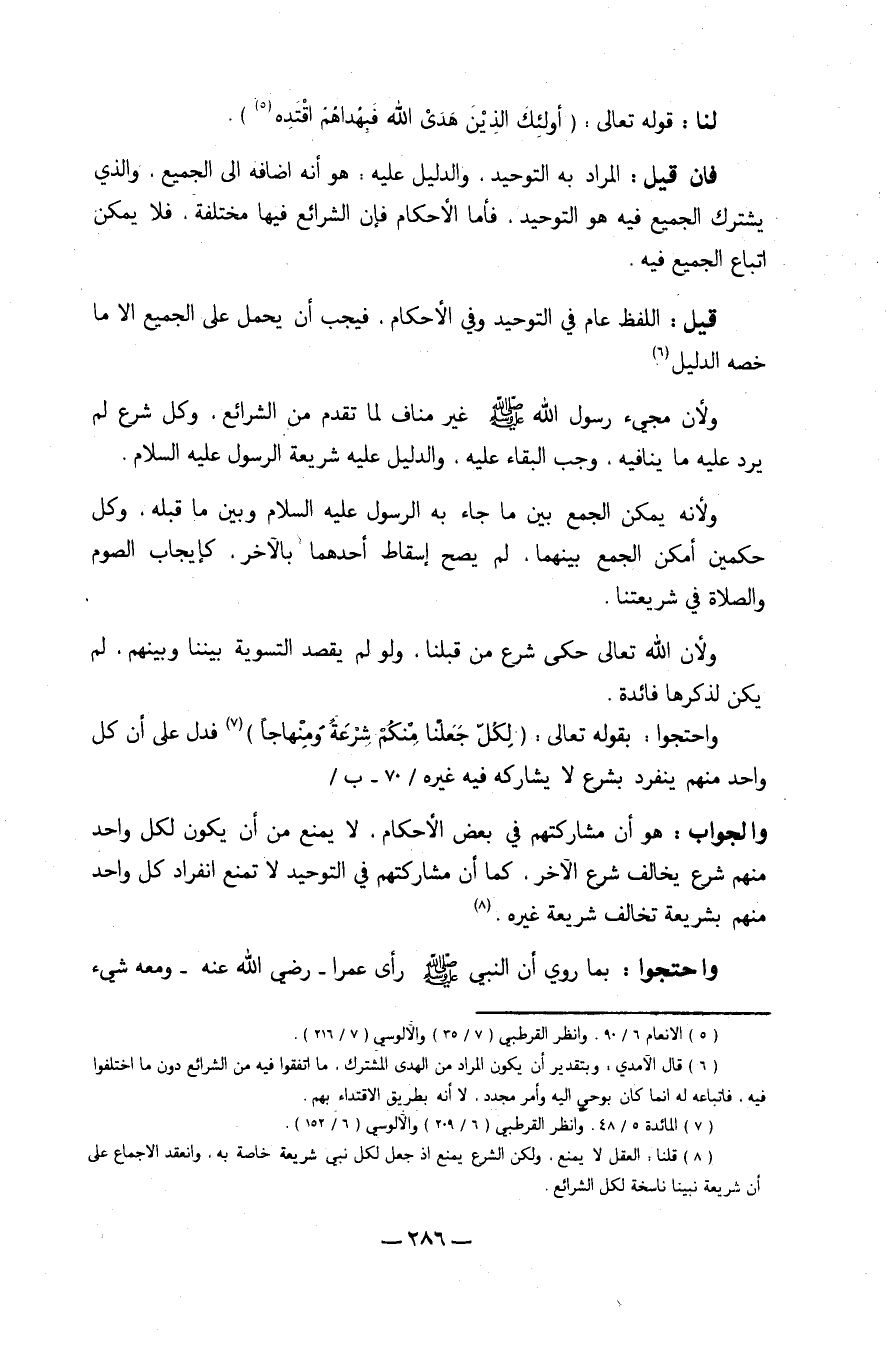 لنا : قوله تعالى : ( أولئِكَ الذِيْنَ هَدَىْ الله فَبِهُداهُمُ اقْتَدِه (٥) ) .
فان قيل : المراد به التوحيد ، والدليل عليه : هو أنه اضافه الى الجميع ، والذي
يشترك الجميع فيه هو التوحيد ، فأما الأحكام فإن الشرائع فيها مختلفة ، فلا يمكن
اتباع الجميع فيه .
قيل : اللفظ عام في التوحيد وفي الأحكام ، فيجب أن يحمل على الجميع الا ما
خصه الدليل (٦)
ولأن مجيء رسول الله ﷺ غير مناف لما تقدم من الشرائع ، وكل شرع لم
يرد عليه ما ينافيه ، وجب البقاء عليه ، والدليل عليه شريعة الرسول عليه السلام .
ولأنه يمكن الجمع بين ما جاء به الرسول عليه السلام وبين ما قبله ، وكل
حكمين أمكن الجمع بينهما ، لم يصح إسقاط أحدهما بالآخر ، كإيجاب الصوم
والصلاة في شريعتنا .
ولأن الله تعالى حكى شرع من قبلنا ، ولو لم يقصد التسوية بيننا وبينهم ، لم
يكن لذكرها فائدة .
واحتجوا : بقوله تعالى : ( لِكُلّ جَعَلْنا مِنْكُمْ شِرْعَةً وَمِنْهاجاً ) (٧) فدل على أن كل
واحد منهم ينفرد بشرع لا يشاركه فيه غيره / ٧٠ ـ ب /
والجواب : هو أن مشاركتهم في بعض الأحكام ، لا يمنع من أن يكون لكل واحد
منهم شرع يخالف شرع الآخر ، كما أن مشاركتهم في التوحيد لا تمنع انفراد كل واحد
منهم بشريعة تخالف شريعة غيره . (٨)
واحتجوا : بما روي أن النبي ﷺ رأى عمرا ـ رضي الله عنه ـ ومعه شيء
( ٥ ) الانعام ٦ / ٩٠ . وانظر القرطبي ( ٧ / ٣٥ ) والآلوسي ( ٧ / ٢١٦ ) .
( ٦ ) قال الآمدي : وبتقدير أن يكون المراد من الهدى المشترك ، ما اتفقوا فيه من الشرائع دون ما اختلفوا
فيه ، فاتباعه له انما كان بوحي اليه وأمر مجدد ، لا أنه بطريق الاقتداء بهم .
( ٧ ) المائدة ٥ / ٤٨ . وانظر القرطبي ( ٦ / ٢٠٩ ) والآلوسي ( ٦ / ١٥٢ ) .
( ٨ ) قلنا : العقل لا يمنع ، ولكن الشرع يمنع اذ جعل لكل نبي شريعة خاصة به ، وانعقد الاجماع على
أن شريعة نبينا ناسخة لكل الشرائع .
ـ ٢٨٦ ـ